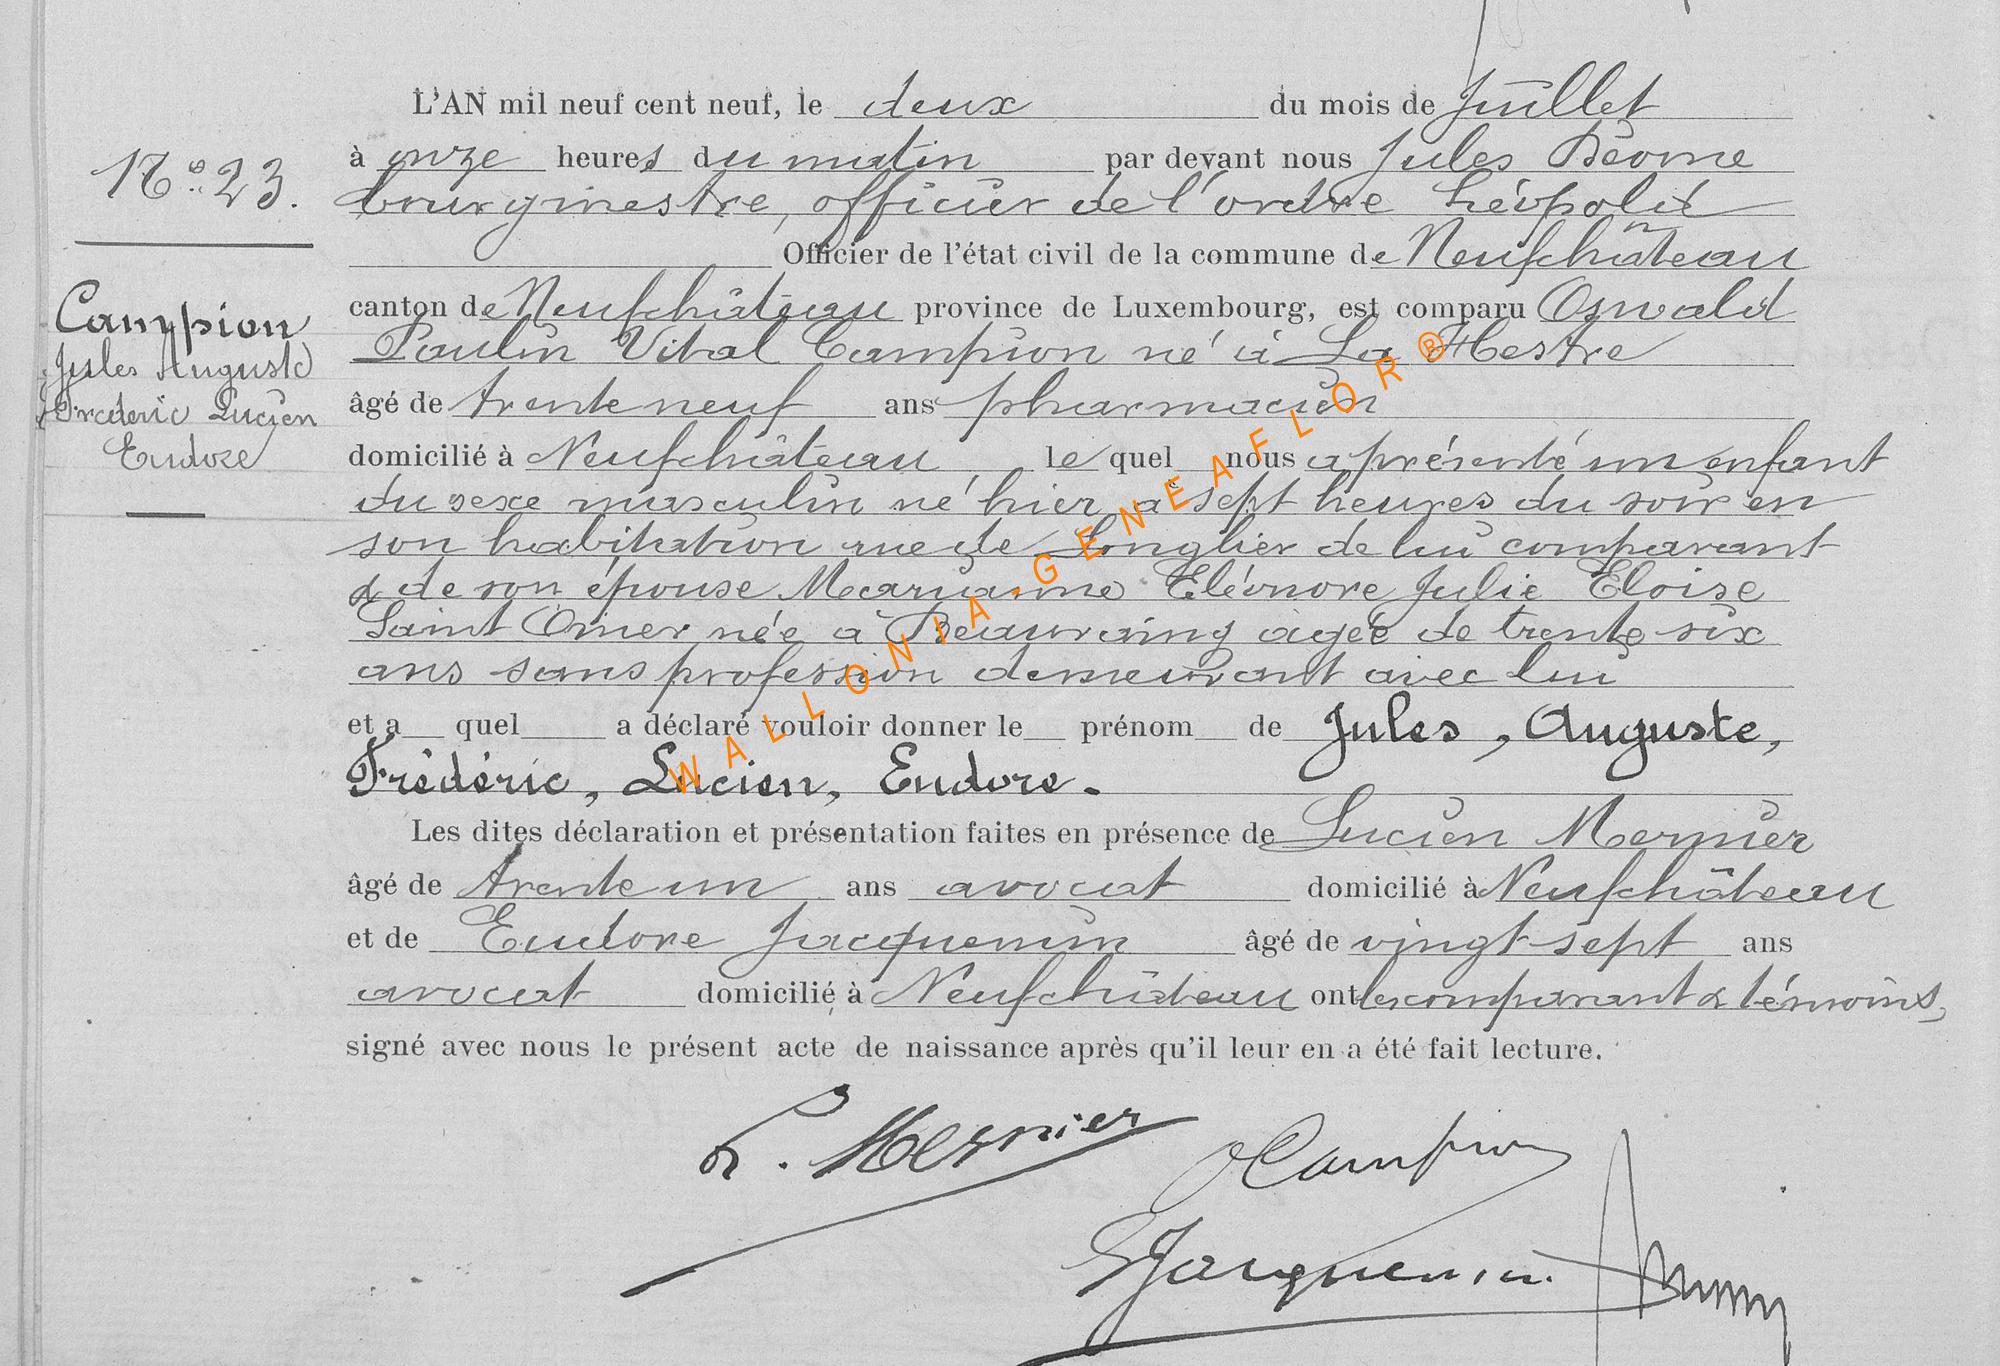 L'AN mil neuf cent neuf, le deux du mois de Juillet
à onze heures du matin par devant nous Jules
N° 23.
bourgmestre, officier de l'ordre Léopold
Officier de l'état civil de la commune de Neufchâteau
canton de Neufchâteau province de Luxembourg, est comparu Oswald
Campion
Paulin Vital Campion né à La Hestre
Jules Auguste
âgé de trente neuf ans pharmacien
Fréderic Lucien
Eudore
domicilié à Neufchâteau le quel nous a présenté un enfant
du sexe masculin né hier à sept heures du soir en
son habitation rue de Longlier de lui comparant
& de son épouse Marianne Eléonore Julie Eloise
Saint Omer née à Beauraing agée de trente six
ans sans profession demeurant avec lui
et a quel a déclaré vouloir donner le prénom de Jules, Auguste,
Frédéric, Lucien, Eudore.
Les dites déclaration et présentation faites en présence de Lucien Mernier
âgé de trente un ans avocat domicilié à Neufchâteau
et de Eudore Jacquemin âgé de vingt sept ans
avocat domicilié à Neufchâteau ont les comparant & témoins,
signé avec nous le présent acte de naissance après qu'il leur en a été fait lecture.
L. Mernier
OCampion
EJacquemin
WALLONIA-GENEAFLOR®